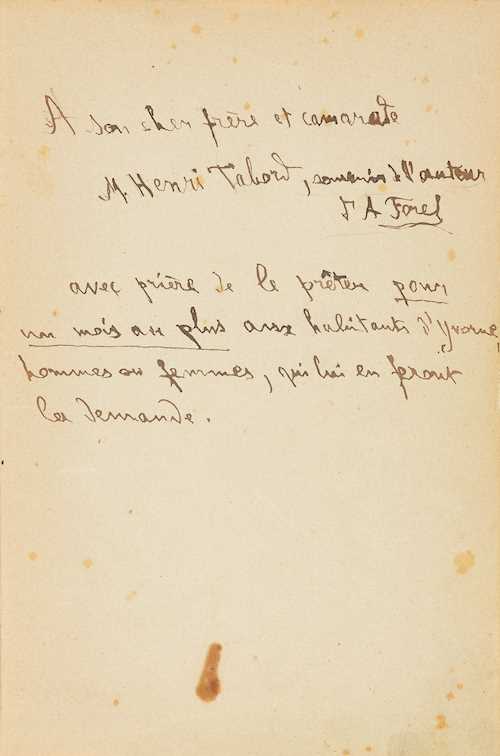 A son cher frère et camarade
M. Henri Tabord, souvenir de l'auteur
Dr A Forel
avec prière de le prêter pour
un mois au plus aux habitants d'Yvorne,
hommes ou femmes, qui lui en feront
la demande.